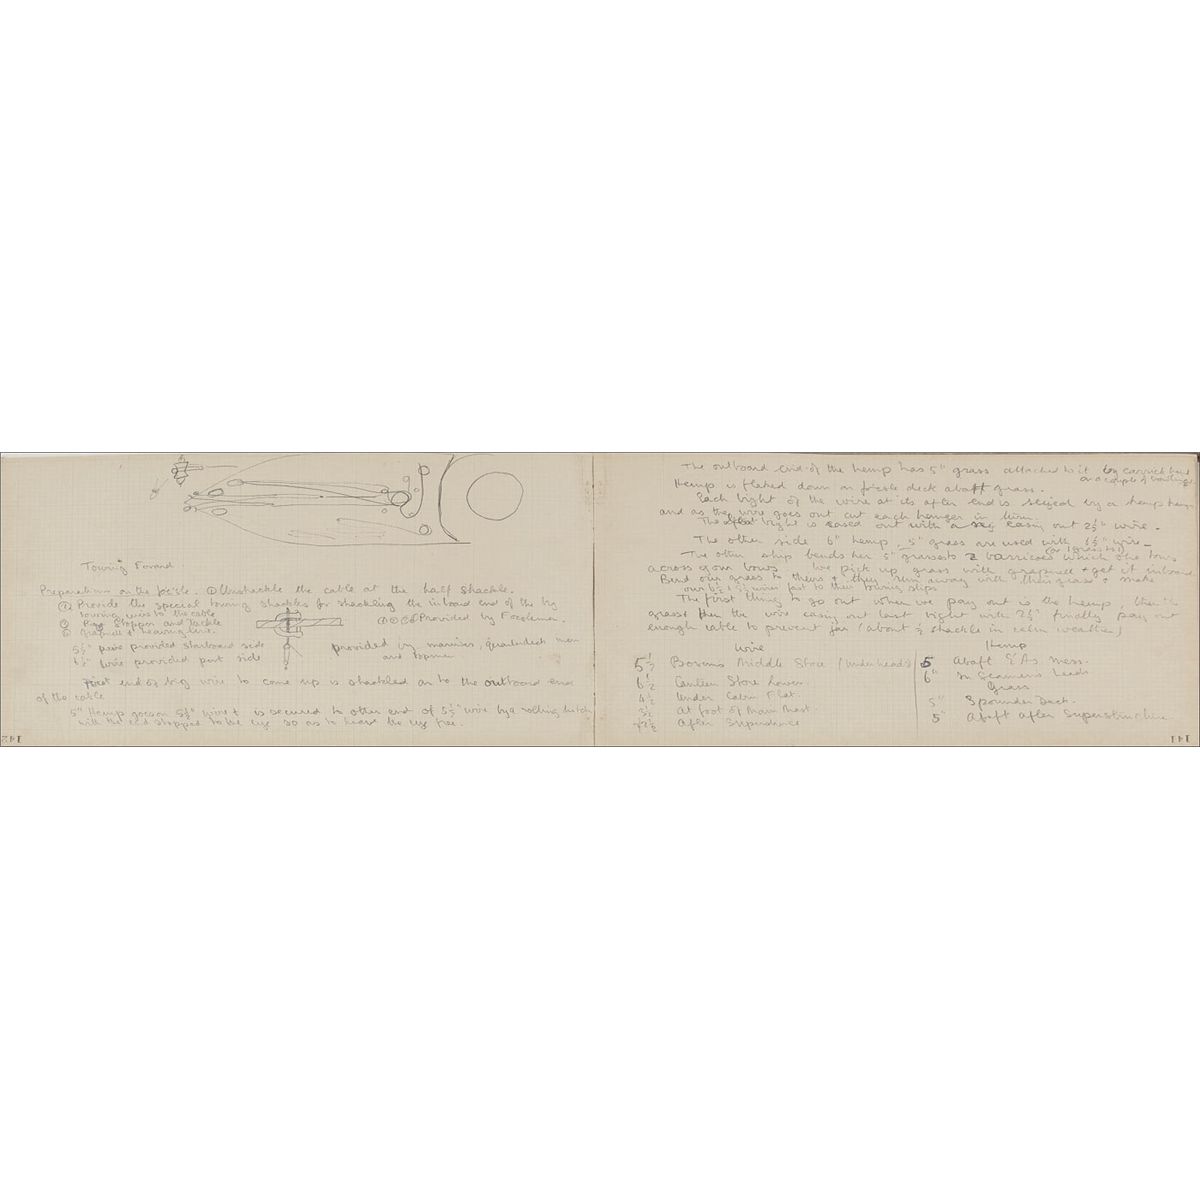 Towing Forard.
Preparations on the fo'c'sle. ① Unshackle the cable at the half shackle.
② Provide the special towing shackles for shackling the inboard end of the big
towing wires to the cable
Stopper and Tackle
Grapnell & heaving line.
Provided by Forecleman.
5½" wire provided starboard side
6½" wire provided port side
provided by marines, quarterdeck men
and topmen
First end of big wire to come up is shackled on to the outboard end
of the cable
5" Hemp goes on 5½" wire & is secured to other end of 5½" wire by a rolling hitch
with the end stopped to the eye so as to leave the eye free.
142
The outboard end of the hemp has 5" grass attached to it by carrick bend
or a couple of bowlines.
Hemp is flaked down on fo'c'sle deck abaft grass.
Each bight of the wire at its after end is seized by a hemp hanger
and as the wire goes out cut each hanger in turn.
The bight is eased out with a easing out 2½" wire.
The other side 6" hemp, 5" grass are used with 6½" wire.
The other ship bends her 5" grass to 2 barricoes which she tows
across your bows. We pick up grass with grapnel & get it inboard
Bend our grass to theirs & they run away with their grass & make
our 6½ & 5½ wires fast to their towing slips
The first thing to go out when we pay out is the hemp, then the
grass then the wire easing out last bight with 2½" finally pay out
enough cable to prevent jar (about ½ shackle in calm weather)
Wire
5½ Bosuns Middle Store (Underheads)
6½ Canteen Store Lower.
4½ Under Cabin Flat.
3½ At foot of Main Mast.
2½ After Superstructure
Hemp
5 Abaft E.A's Mess.
6" In Seamens Heads
Grass
5" 5 pounder Deck.
5" Abaft after Superstructure
141